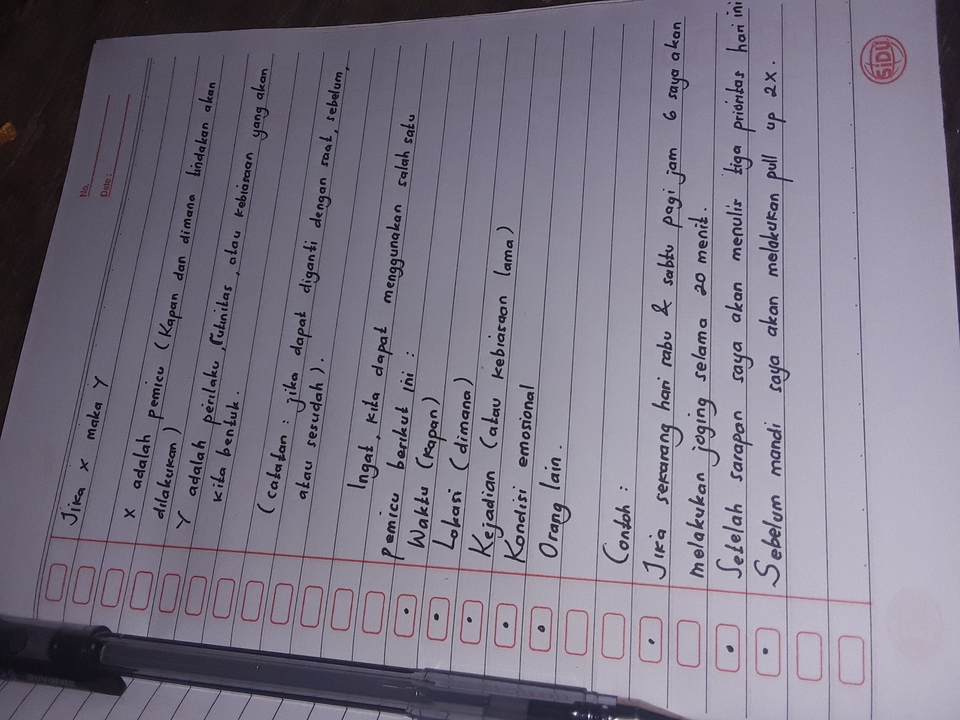 No.
Date :
Jika x maka Y
x adalah pemicu (Kapan dan dimana tindakan akan
dilakukan)
Y adalah perilaku, rutinitas, atau kebiasaan yang akan
kita bentuk.
(catatan : jika dapat diganti dengan saat, sebelum,
atau sesudah).
Ingat, kita dapat menggunakan salah satu
pemicu berikut ini :
• Waktu (kapan)
• Lokasi (dimana)
• Kejadian (atau kebiasaan lama)
• Kondisi emosional
• Orang lain.
Contoh :
• Jika sekarang hari rabu & sabtu pagi jam 6 saya akan
melakukan joging selama 20 menit.
• Setelah sarapan saya akan menulis tiga prioritas hari ini
• Sebelum mandi saya akan melakukan pull up 2x.
SiDU